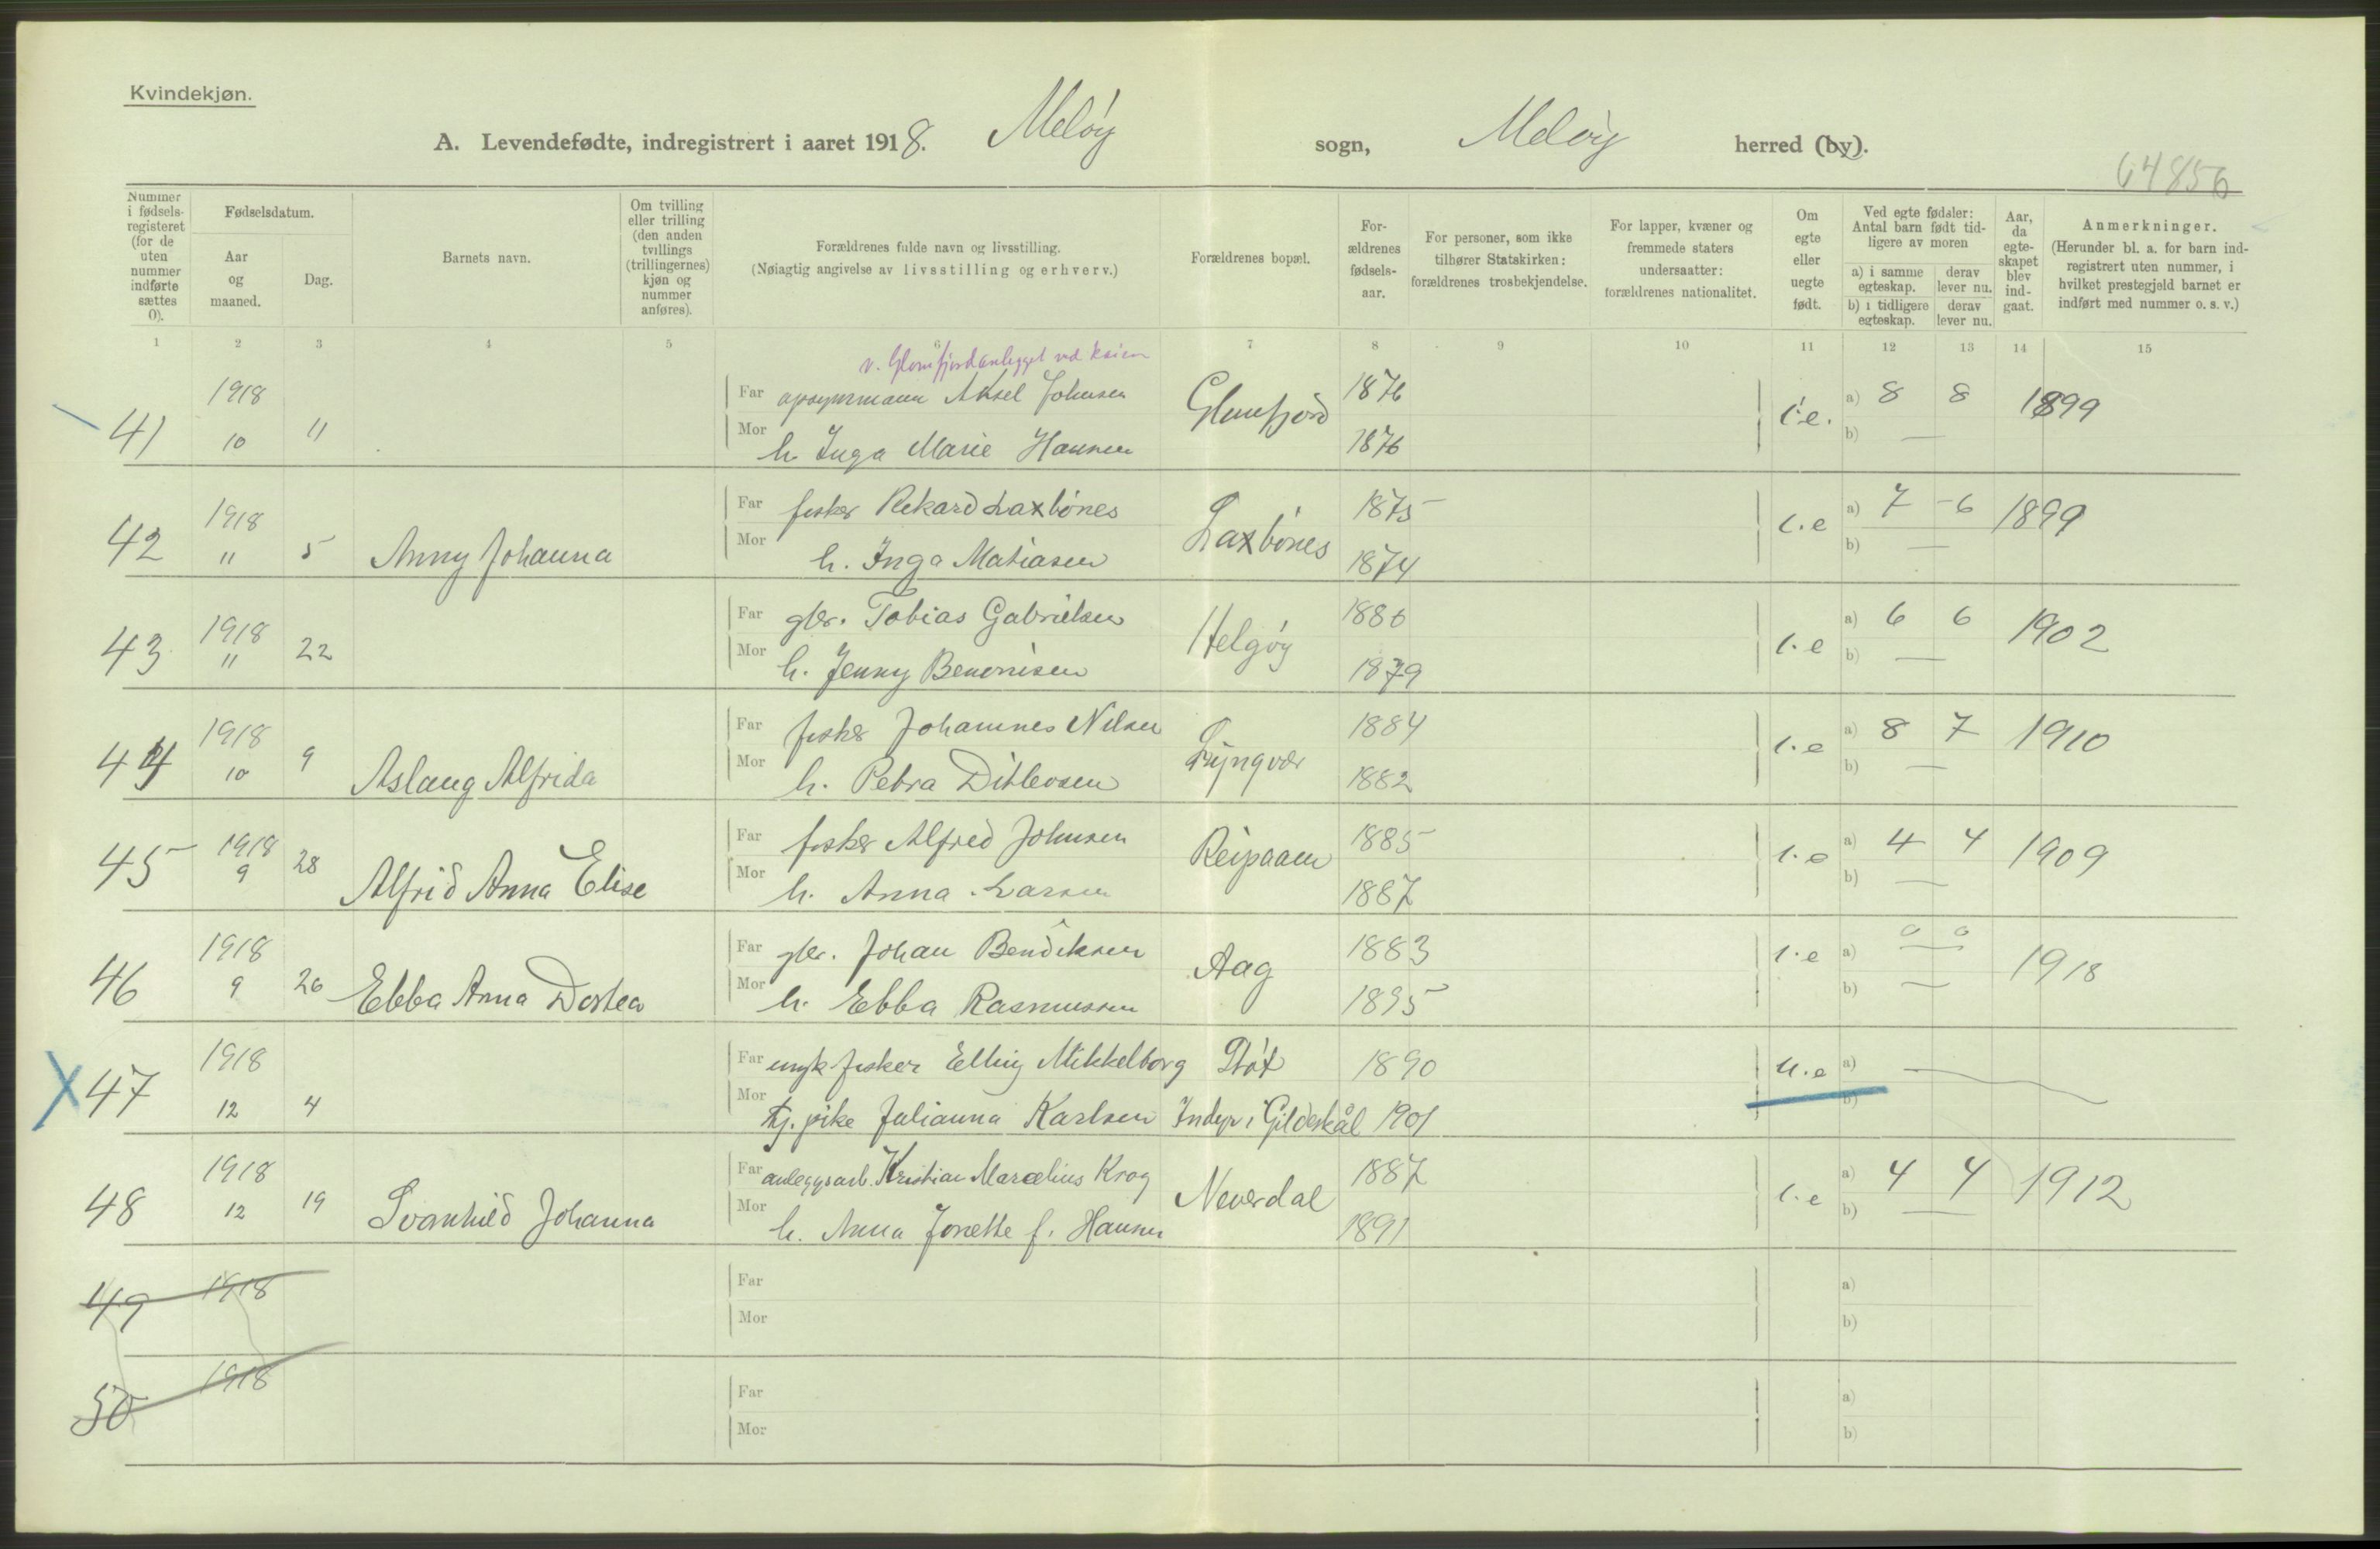 Kvindekjøn.
A. Levendefødte, indregistrert i aaret 1918. Meløy sogn, Meløy herred (by).
64856
Nummer i fødselsregisteret (for de uten nummer indførte sættes 0).
Fødselsdatum.
Aar og maaned.
Dag.
Barnets navn.
Om tvilling eller trilling (den anden tvillings (trillingernes) kjøn og nummer anføres).
Forældrenes fulde navn og livsstilling.
(Nøiagtig angivelse av livsstilling og erhverv.)
Forældrenes bopæl.
Forældrenes fødselsaar.
For personer, som ikke tilhører Statskirken: forældrenes trosbekjendelse.
For lapper, kvæner og fremmede staters undersaatter: forældrenes nationalitet.
Om egte eller uegte født.
Ved egte fødsler: Antal barn født tidligere av moren
a) i samme egteskap.
derav lever nu.
b) i tidligere egteskap.
derav lever nu.
Aar, da egteskapet blev indgaat.
Anmerkninger.
(Herunder bl. a. for barn indregistrert uten nummer, i hvilket prestegjeld barnet er indført med nummer o. s. v.)
1 2 3 4 5 6 7 8 9 10 11 12 13 14 15
v. Glomfjordanlegget ved kaien
41 1918 10 11 Far opsynsmann Aksel Johnsen Glomfjord 1876 i.e. a) 8 8 1899
Mor h. Inga Marie Hansen 1876 b) —
42 1918 " 5 Anny Johanna Far fisker Rikard Laxbönes Laxbönes 1875 i.e a) 7 6 1899
Mor h. Inga Matiasen 1874 b) —
43 1918 " 22 Far gbr. Tobias Gabrielsen Helgöy 1880 i.e a) 6 6 1902
Mor h. Jenny Benonisen 1879 b) —
44 1918 10 9 Aslaug Alfrida Far fisker Johannes Nilsen Lyngvær 1884 i.e a) 8 7 1910
Mor h. Petra Ditlevsen 1882 b) —
45 1918 9 28 Alfrid Anna Elise Far fisker Alfred Johnsen Reipaaen 1885 i.e a) 4 4 1909
Mor h. Anna Larsen 1887 b) —
46 1918 9 26 Ebba Anna Dortea Far gbr. Johan Bendiksen Aag 1883 i.e a) 0 0 1918
Mor h. Ebba Rasmussen 1895 b) —
47 1918 12 4 Far ungk fisker Elling Mikkelborg Støt 1890 u.e a) —
Mor tj. pike Julianna Karlsen Indyr i Gildeskål 1901 b)
48 1918 12 19 Svanhild Johanna Far anleggsarb. Kristian Marcelius Krog Neverdal 1887 i.e a) 4 4 1912
Mor h. Anna Jonette f. Hansen 1891 b) —
49 1918 Far a)
Mor b)
50 1918 Far a)
Mor b)